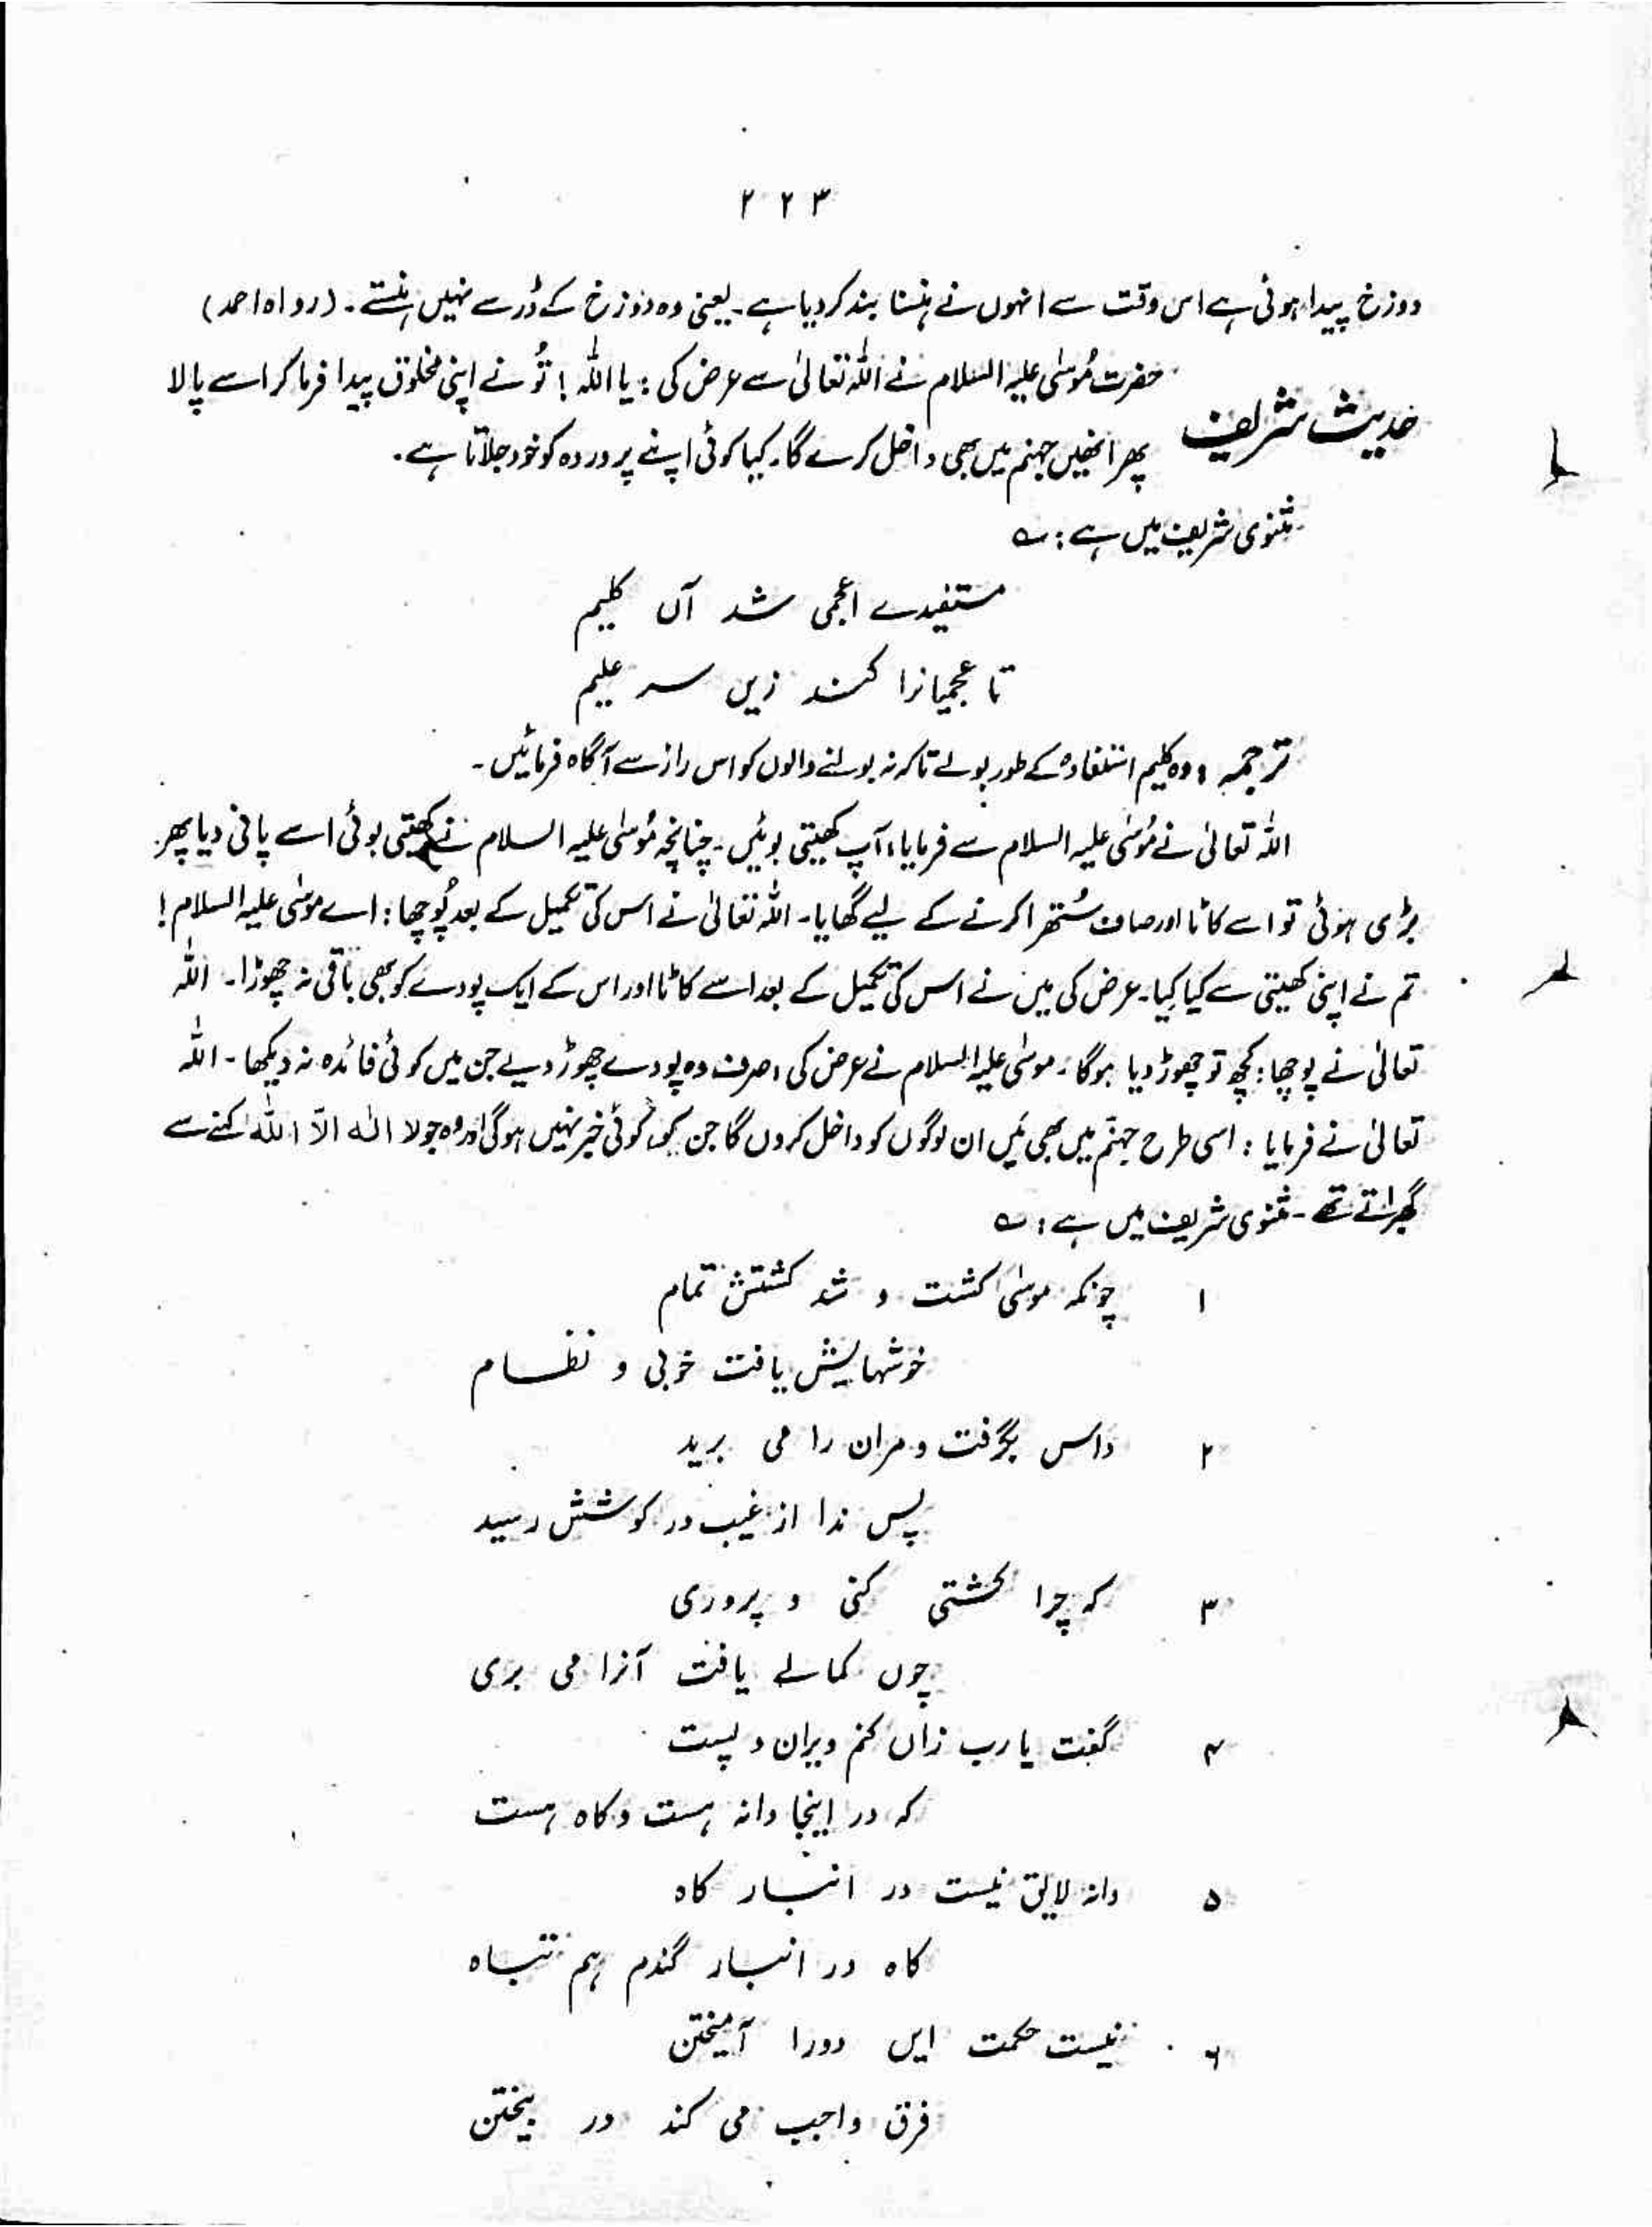 ۲۲۳
دوزخ پیدا ہوئی ہے اس وقت سے انہوں نے ہنسنا بند کر دیا ہے۔ یعنی وہ دوزخ کے ڈر سے نہیں ہنستے۔ (رواہ احمد)
حدیث شریف
حضرت مُوسٰی علیہ السلام نے اللہ تعالیٰ سے عرض کی : یا اللہ ! تُو نے اپنی مخلوق پیدا فرما کر اسے پالا
پھر انھیں جہنم میں بھی داخل کرے گا۔ کیا کوئی اپنے پروردہ کو خود جلاتا ہے۔
مثنوی شریف میں ہے : ؎
مستفیدے اعجمی شد آں کلیم
تا عجمیانرا کند زیں سر علیم
ترجمہ : وہ کلیم استفادہ کے طور بولے تاکہ نہ بولنے والوں کو اس راز سے آگاہ فرمائیں۔
اللہ تعالیٰ نے مُوسٰی علیہ السلام سے فرمایا، آپ کھیتی بوئیں۔ چنانچہ مُوسٰی علیہ السلام نے کھیتی بوئی اسے پانی دیا پھر
بڑی ہوئی تو اسے کاٹا اور صاف سُتھرا کرنے کے لیے گھایا۔ اللہ تعالیٰ نے اس کی تکمیل کے بعد پُوچھا : اے موسٰی علیہ السلام !
تم نے اپنی کھیتی سے کیا کِیا۔ عرض کی میں نے اس کی تکمیل کے بعد اسے کاٹا اور اس کے ایک پودے کو بھی باقی نہ چھوڑا۔ اللہ
تعالیٰ نے پوچھا : کچھ تو چھوڑ دیا ہوگا، موسٰی علیہ السلام نے عرض کی، صرف وہ پودے چھوڑ دیے جن میں کوئی فائدہ نہ دیکھا۔ اللہ
تعالیٰ نے فرمایا : اسی طرح جہنّم میں بھی مَیں ان لوگوں کو داخل کروں گا جن کی کوئی خبر نہیں ہوگی اور وہ جو لا الٰہ الّا اللہ کہنے سے
گھبراتے تھے۔ مثنوی شریف میں ہے : ؎
۱ چونکہ موسٰی کشت و شد کشتش تمام
خوشہایش یافت خوبی و نظام
۲ داس بگرفت و مراں را می برید
پس ندا از غیب در گوشش رسید
۳ کہ چرا کشتی کنی و پروری
چوں کمالے یافت آنرا می بری
۴ گفت یا رب زاں کنم ویران و پست
کہ در اینجا دانہ ہست و کاہ ہست
۵ دانہ لایق نیست در انبار کاہ
کاہ در انبار گندم ہم تباہ
۶ نیست حکمت ایں دورا آمیختن
فرق واجب می کند در بیختن